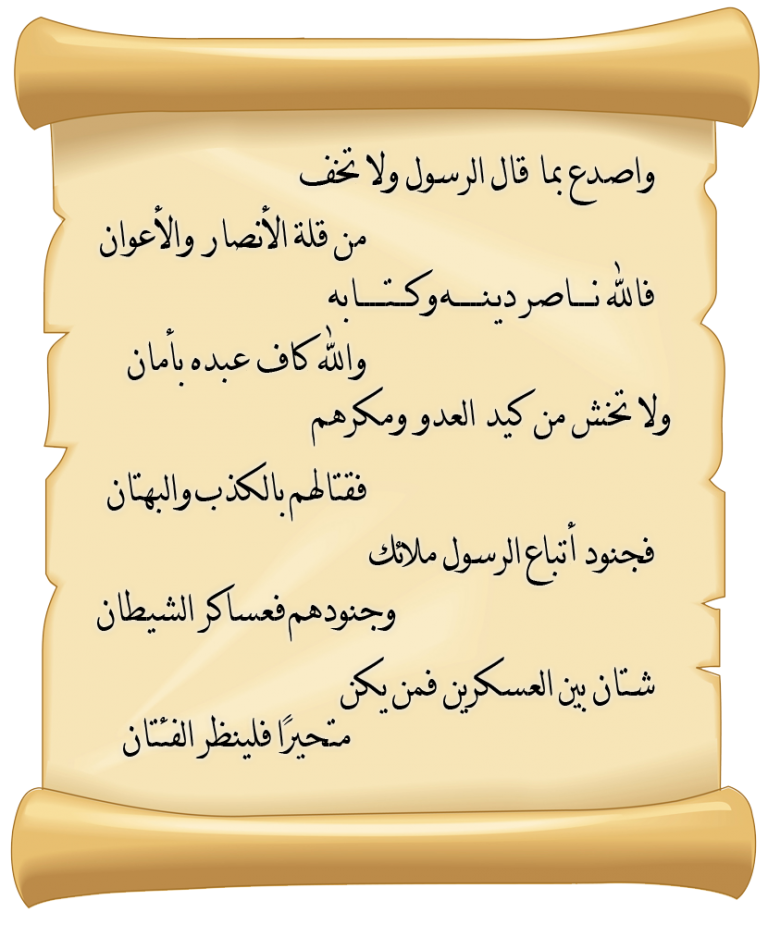 واصدع بما قال الرسول ولا تخف
من قلة الأنصار والأعوان
فالله نــاصر دينــــه وكــتــــابه
والله كاف عبده بأمان
ولا تخش من كيد العدو ومكرهم
فقتالهم بالكذب والبهتان
فجنود أتباع الرسول ملائك
وجنودهم فعساكر الشيطان
شتان بين العسكرين فمن يكن
متحيرًا فلينظر الفئتان